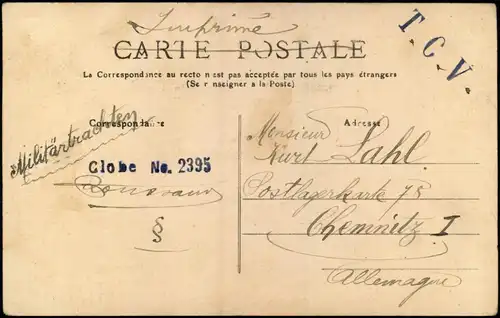 Imprimé
T.C.V.
CARTE POSTALE
La Correspondance au recto n'est pas acceptée par tous les pays étrangers
(Se renseigner à la Poste)
Correspondance
Adresse
Militärtrachten
Globe No. 2395
§
Monsieur
Kurt Lahl.
Postlagerkarte 75
Chemnitz I
Allemagne